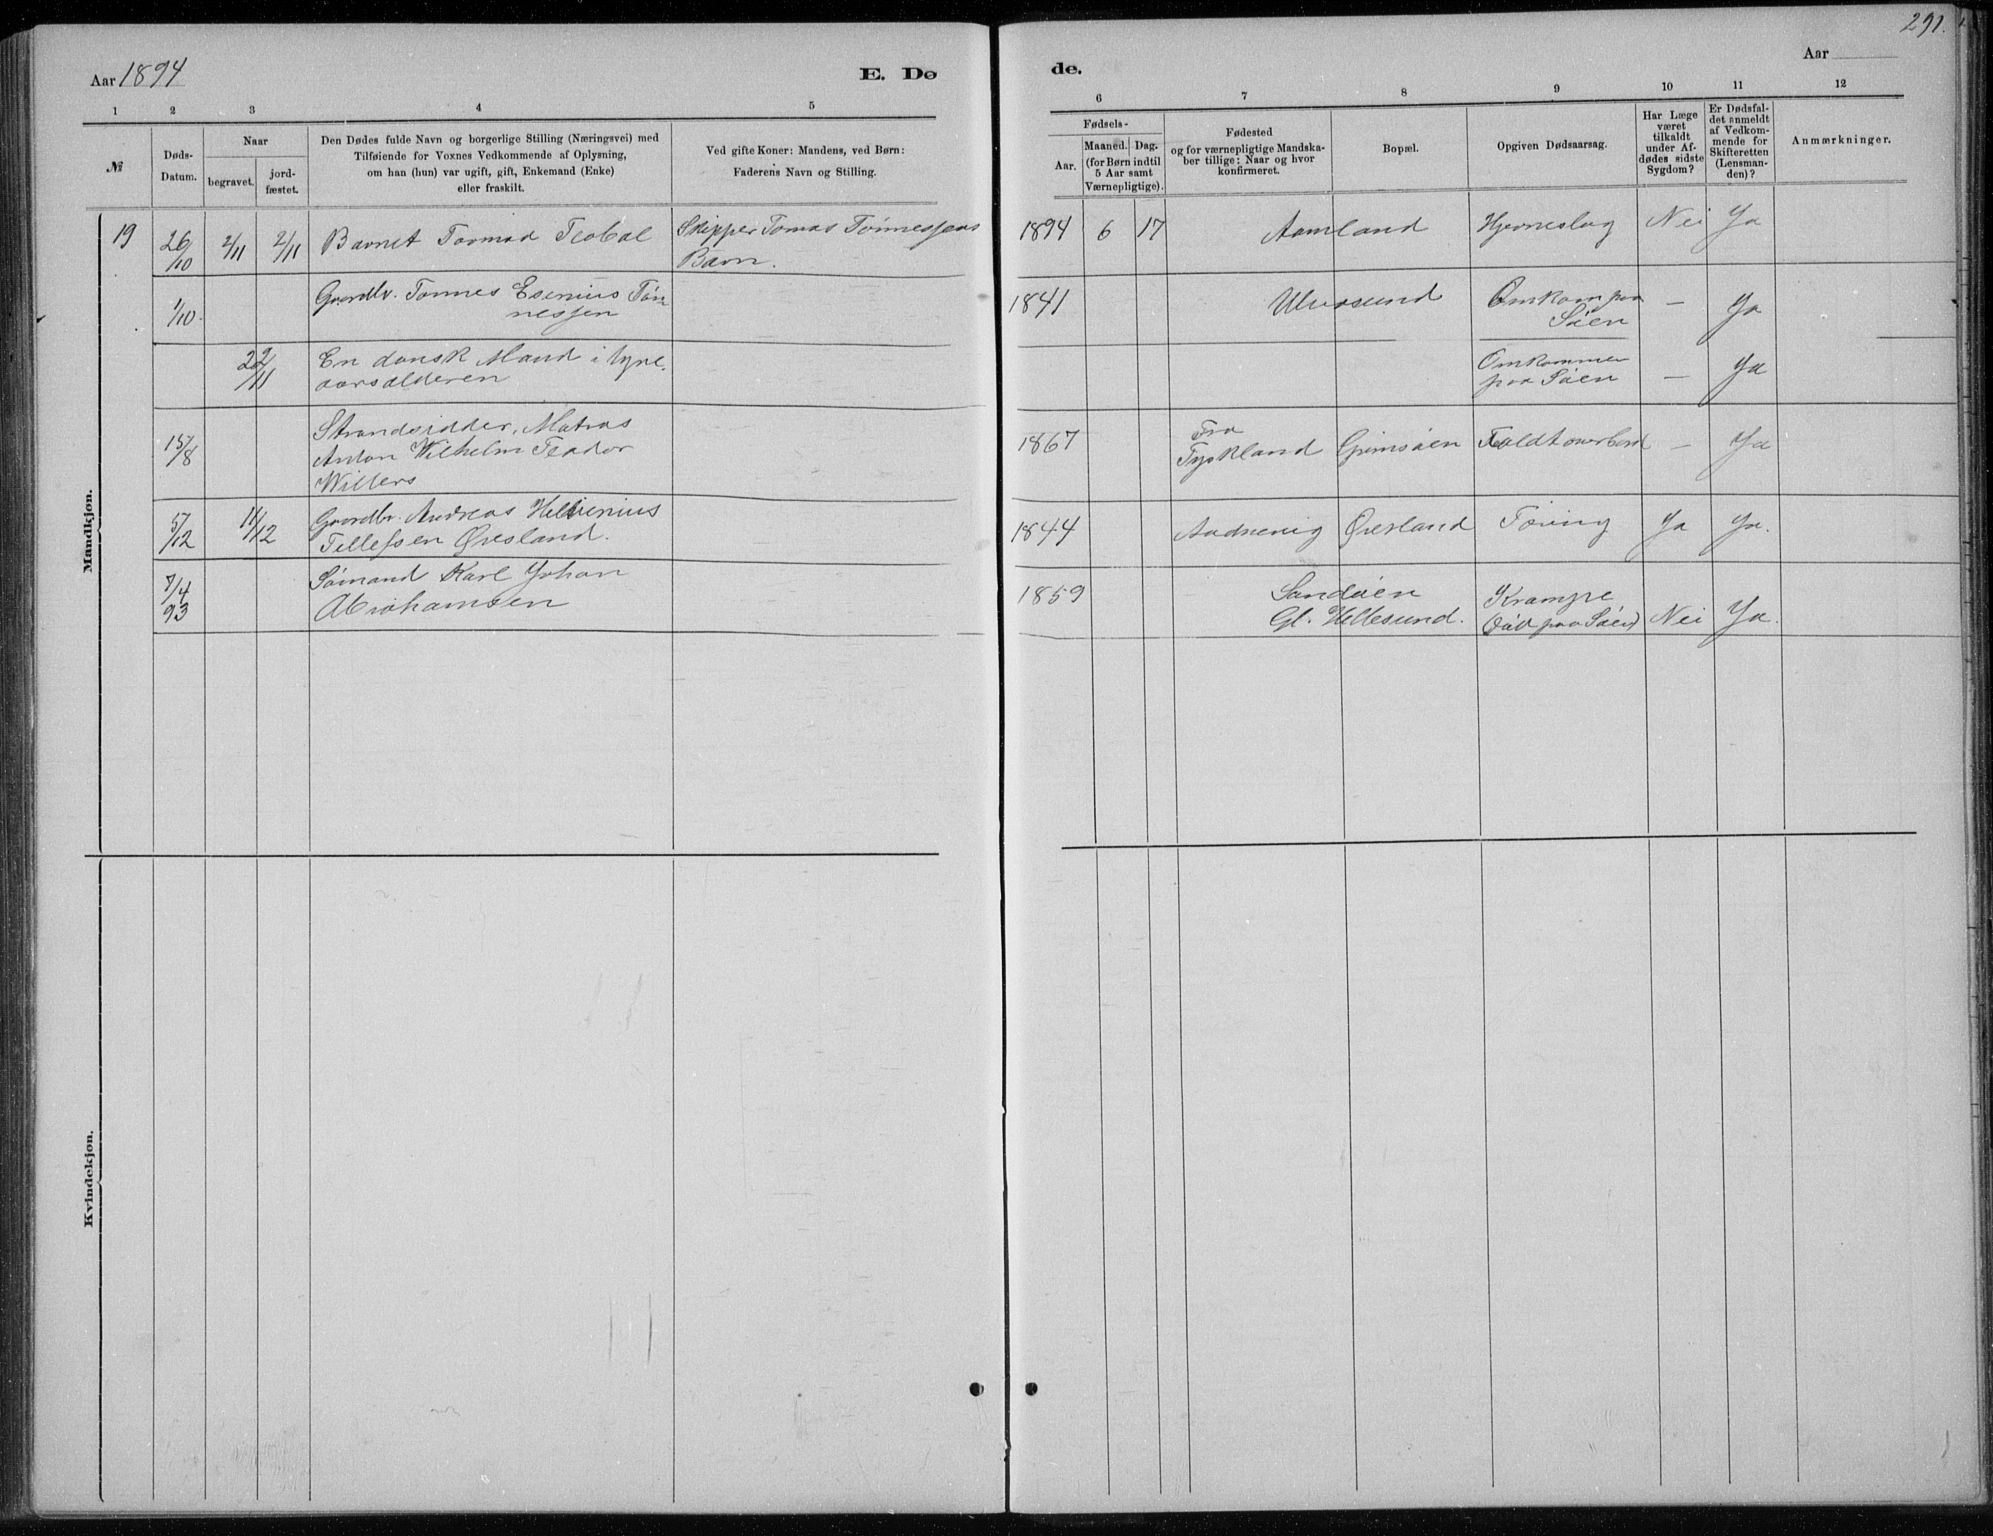 291.
Aar 1894
E. Dø
de.
Aar
1 2 3 4 5
6 7 8 9 10 11 12
№
Døds-
Datum.
Naar
begravet.
jord-
fæstet.
Den Dødes fulde Navn og borgerlige Stilling (Næringsvei) med
Tilføiende for Voxnes Vedkommende af Oplysning,
om han (hun) var ugift, gift, Enkemand (Enke)
eller fraskilt.
Ved gifte Koner: Mandens, ved Børn:
Faderens Navn og Stilling.
Fødsels-
Aar.
Maaned. Dag.
(for Børn indtil
5 Aar samt
Værnepligtige).
Fødested
og for værnepligtige Mandska-
ber tillige: Naar og hvor
konfirmeret.
Bopæl.
Opgiven Dødsaarsag.
Har Læge
været
tilkaldt
under Af-
dødes sidste
Sygdom?
Er Dødsfal-
det anmeldt
af Vedkom-
mende for
Skifteretten
(Lensman-
den)?
Anmærkninger.
Mandkjøn.
19 26/10 2/11 2/11 Barnet Tormod Teobal Skipper Tomas Tønnessens
Barn.
1894 6 17 Aamland Hjerneslag Nei Ja
1/10. Gaardbr. Tønnes Esenius Tøn
nessen
1841 Ulvøsund Omkom paa
Søen
— Ja
22/11 En dansk Mand i tyve-
aarsalderen
Omkommen
paa Søen
— Ja
15/8 Strandsidder, Matros
Anton Wilhelm Teodor
Willers
1867 Fra
Tyskland Grimsøen Faldt overbord — Ja
5/12 11/12 Gaardbr. Andreas Helvenius
Tellefsen Øresland.
1844 Aadnevig Øresland Tæring Ja Ja.
7/4
93
Sømand Karl Johan
Abrahamsen
1859 Sandøen
Gl. Hellesund.
Krampe
(død paa Søen) Nei Ja.
Kvindekjøn.